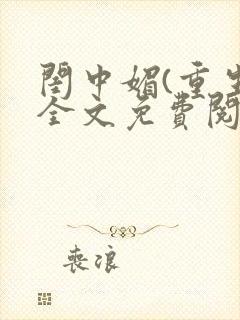 閨中媚(重生
全文免費閱
喪浪